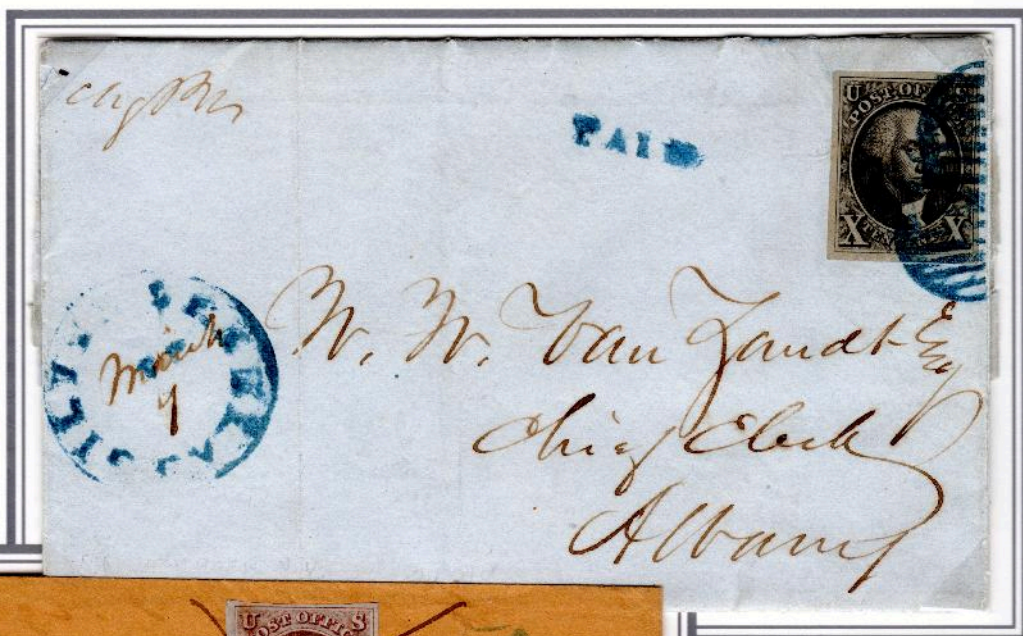 PAID
U POST OFFICE
X TEN CENTS X
March
7
W. W. Van Zandt Esq
Chief Clerk
Albany
U POST OFFICE S